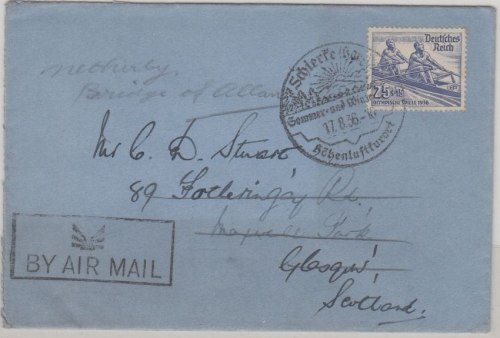 Deutsches
Reich
25+15
OLYMPISCHE SPIELE 1936
Schierke (Harz)
Sommer- und Winter
17.8.36
Höhenluftkurort
Netherby,
Bridge of Allan
Mr C. D. Stuart
89 Fotheringay Rd.
Maxwell Park
Glasgow
Scotland.
BY AIR MAIL